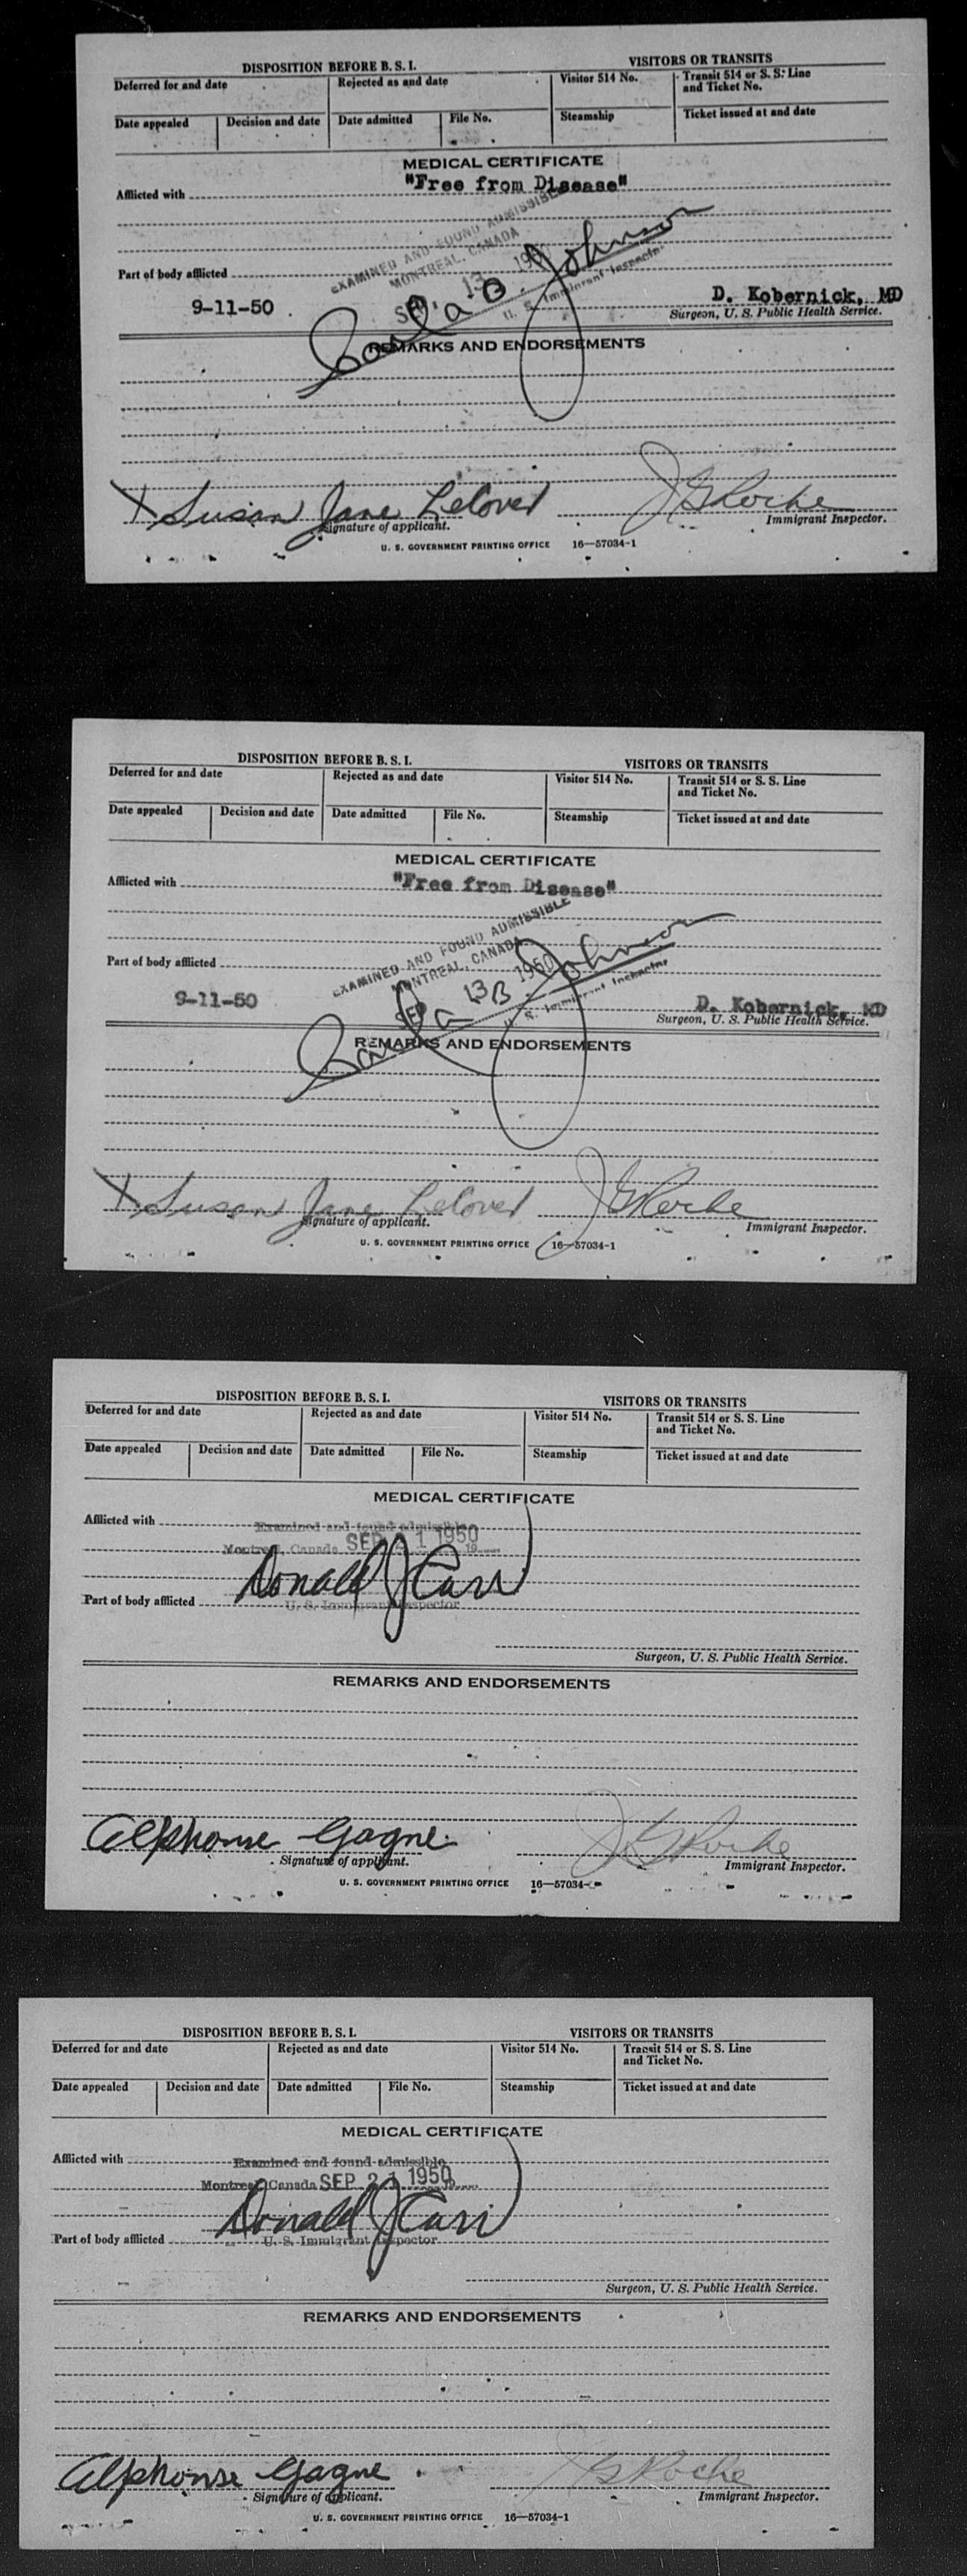 DISPOSITION BEFORE B. S. I. VISITORS OR TRANSITS
Deferred for and date Rejected as and date Visitor 514 No. Transit 514 or S. S. Line and Ticket No.
Date appealed Decision and date Date admitted File No. Steamship Ticket issued at and date
MEDICAL CERTIFICATE
Afflicted with "Free from Disease"
EXAMINED AND FOUND ADMISSIBLE
MONTREAL, CANADA
SEP 13 195
B. Johnson
U. S. Immigrant Inspector
Part of body afflicted
9-11-50 D. Kobernick, MD
Surgeon, U. S. Public Health Service.
REMARKS AND ENDORSEMENTS
X Susan Jane Lelover J G Roche
Signature of applicant. Immigrant Inspector.
U. S. GOVERNMENT PRINTING OFFICE 16—57034-1
DISPOSITION BEFORE B. S. I. VISITORS OR TRANSITS
Deferred for and date Rejected as and date Visitor 514 No. Transit 514 or S. S. Line and Ticket No.
Date appealed Decision and date Date admitted File No. Steamship Ticket issued at and date
MEDICAL CERTIFICATE
Afflicted with "Free from Disease"
EXAMINED AND FOUND ADMISSIBLE
MONTREAL, CANADA
SEP 13 1950
B Johnson
U. S. Immigrant Inspector
Part of body afflicted
9-11-50 D. Kobernick, MD
Surgeon, U. S. Public Health Service.
REMARKS AND ENDORSEMENTS
X Susan Jane Lelover J G Roche
Signature of applicant. Immigrant Inspector.
U. S. GOVERNMENT PRINTING OFFICE 16—57034-1
DISPOSITION BEFORE B. S. I. VISITORS OR TRANSITS
Deferred for and date Rejected as and date Visitor 514 No. Transit 514 or S. S. Line and Ticket No.
Date appealed Decision and date Date admitted File No. Steamship Ticket issued at and date
MEDICAL CERTIFICATE
Afflicted with Examined and found admissible
Montreal, Canada SEP 21 1950 19
Donald J Carr
Part of body afflicted U. S. Immigrant Inspector
Surgeon, U. S. Public Health Service.
REMARKS AND ENDORSEMENTS
Alphonse Gagne J G Roche
Signature of applicant. Immigrant Inspector.
U. S. GOVERNMENT PRINTING OFFICE 16—57034-
DISPOSITION BEFORE B. S. I. VISITORS OR TRANSITS
Deferred for and date Rejected as and date Visitor 514 No. Transit 514 or S. S. Line and Ticket No.
Date appealed Decision and date Date admitted File No. Steamship Ticket issued at and date
MEDICAL CERTIFICATE
Afflicted with Examined and found admissible
Montreal, Canada SEP 21 1950
Donald J Carr
Part of body afflicted U. S. Immigrant Inspector
Surgeon, U. S. Public Health Service.
REMARKS AND ENDORSEMENTS
Alphonse Gagne J G Roche
Signature of applicant. Immigrant Inspector.
U. S. GOVERNMENT PRINTING OFFICE 16—57034-1